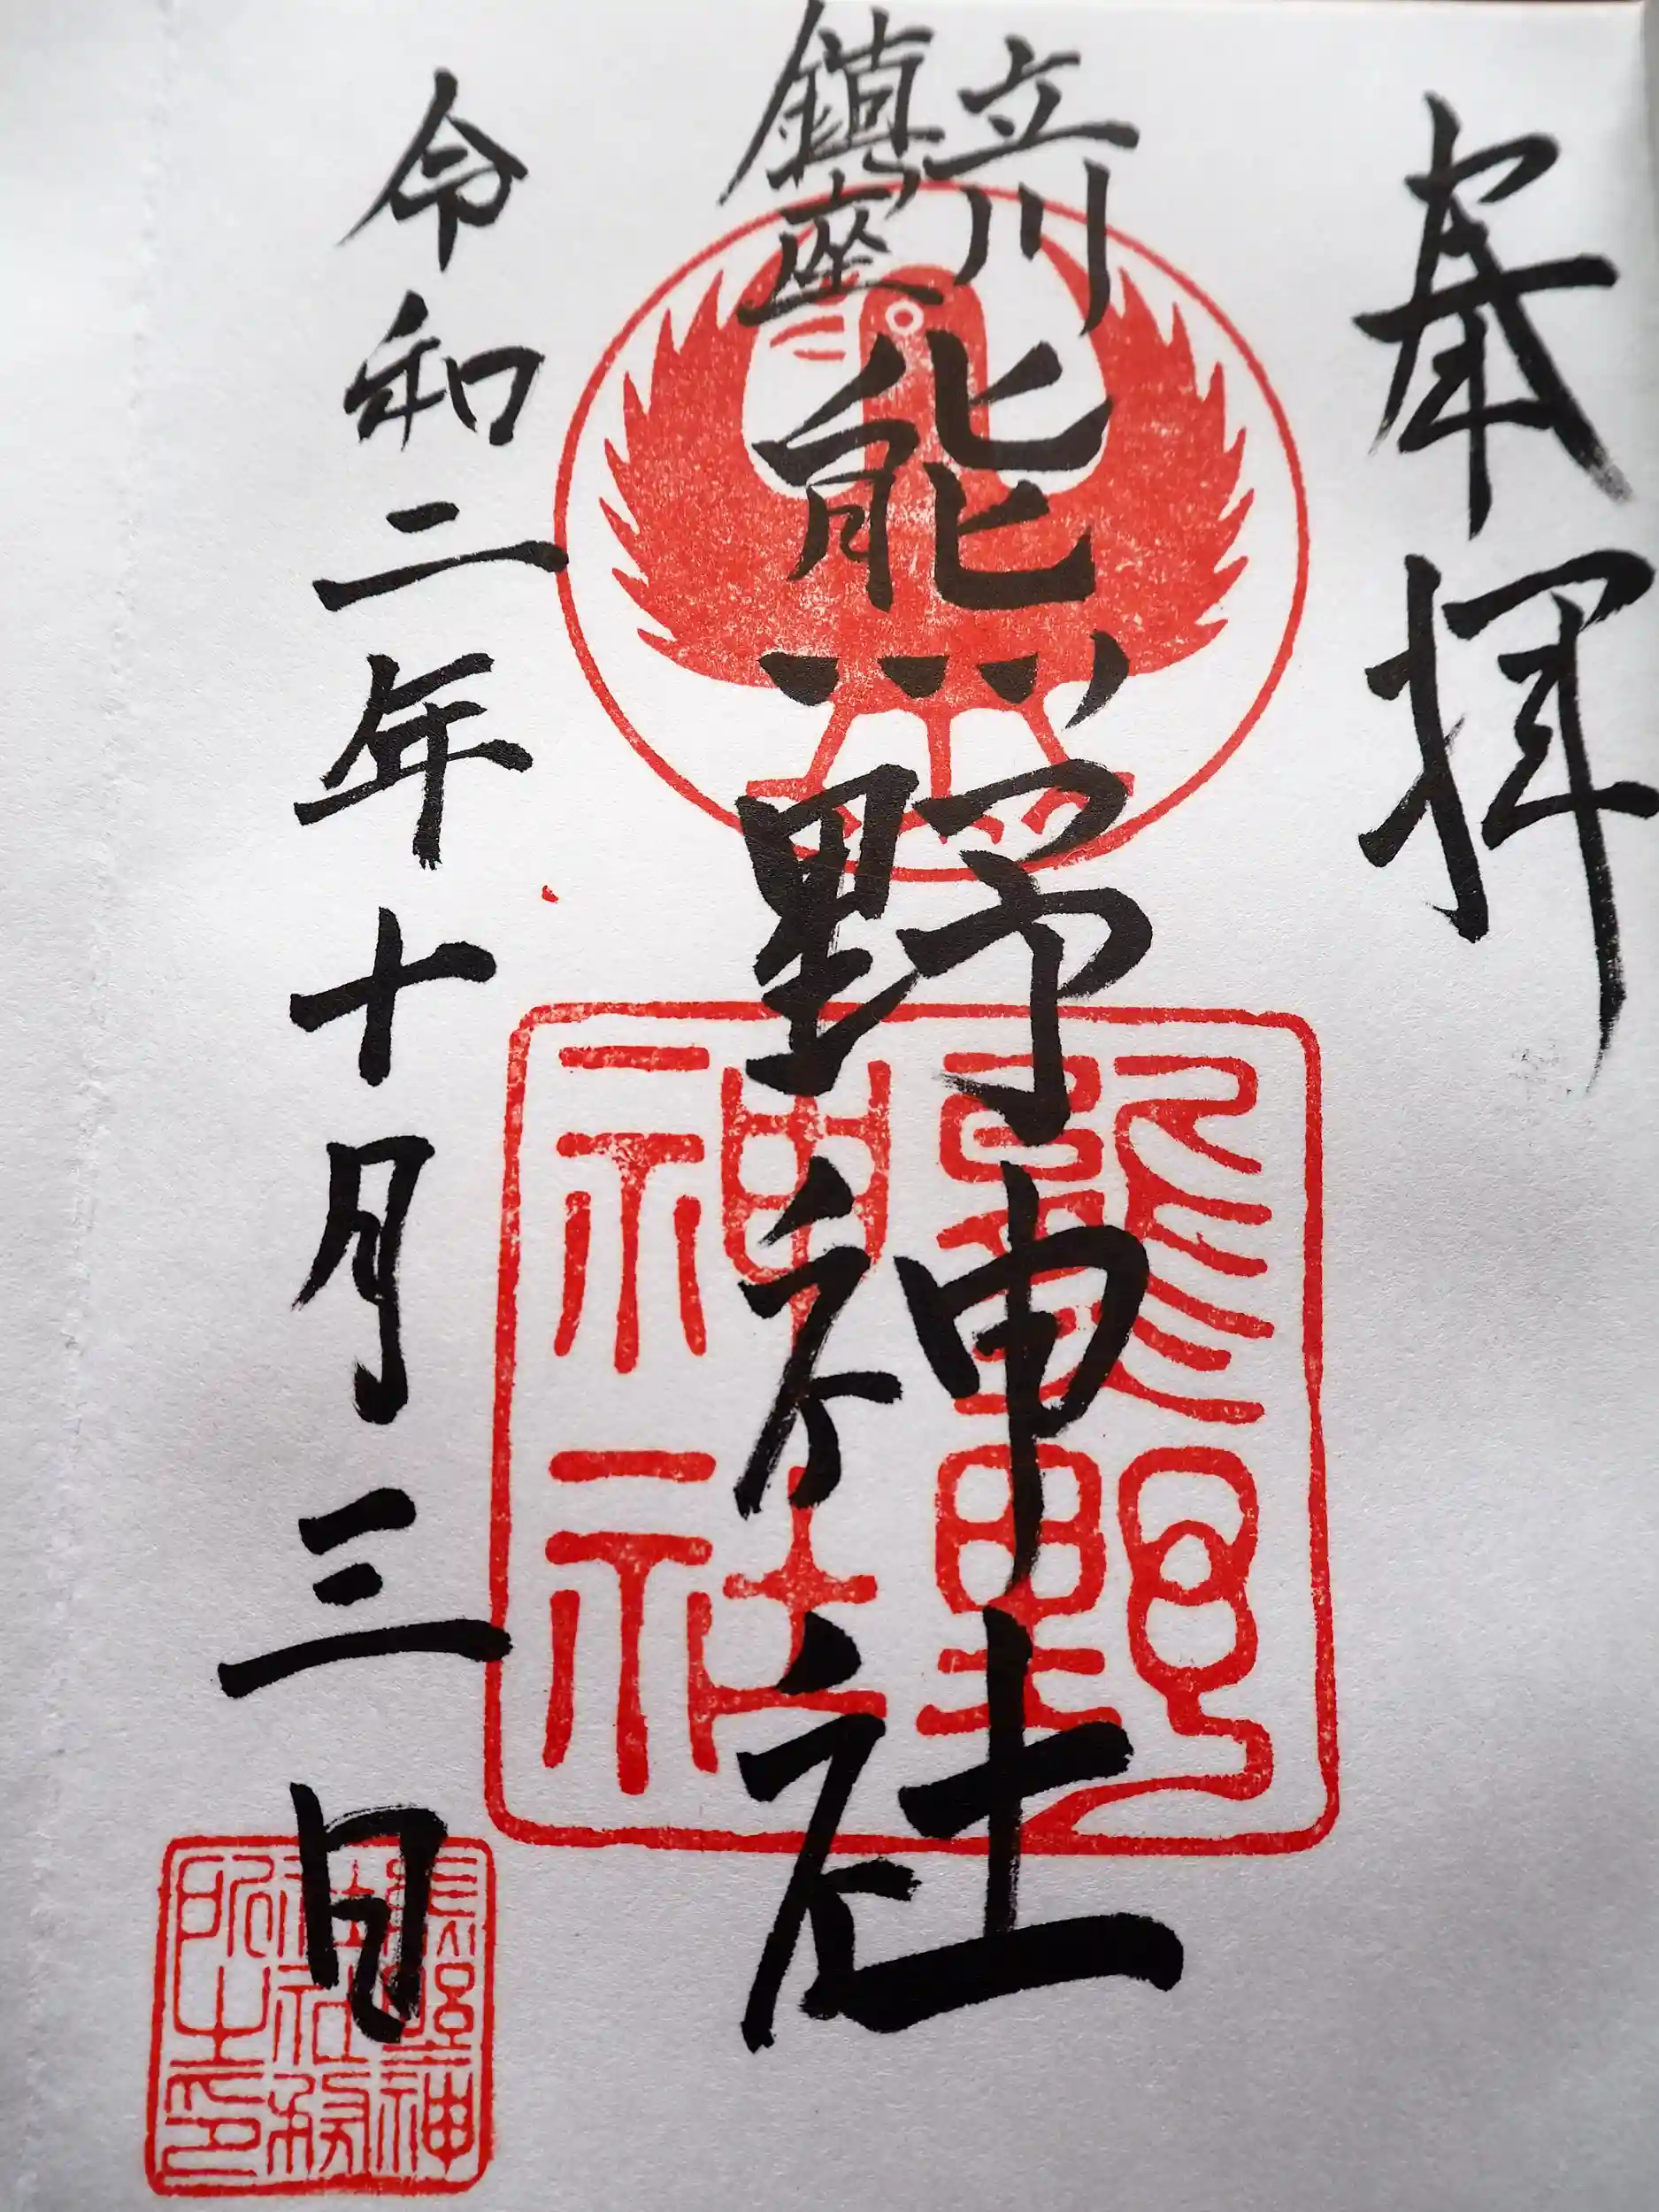 奉拝
立川
鎮座
熊野神社
熊野
神社
令和二年十月三日
熊野神
社務
所之印